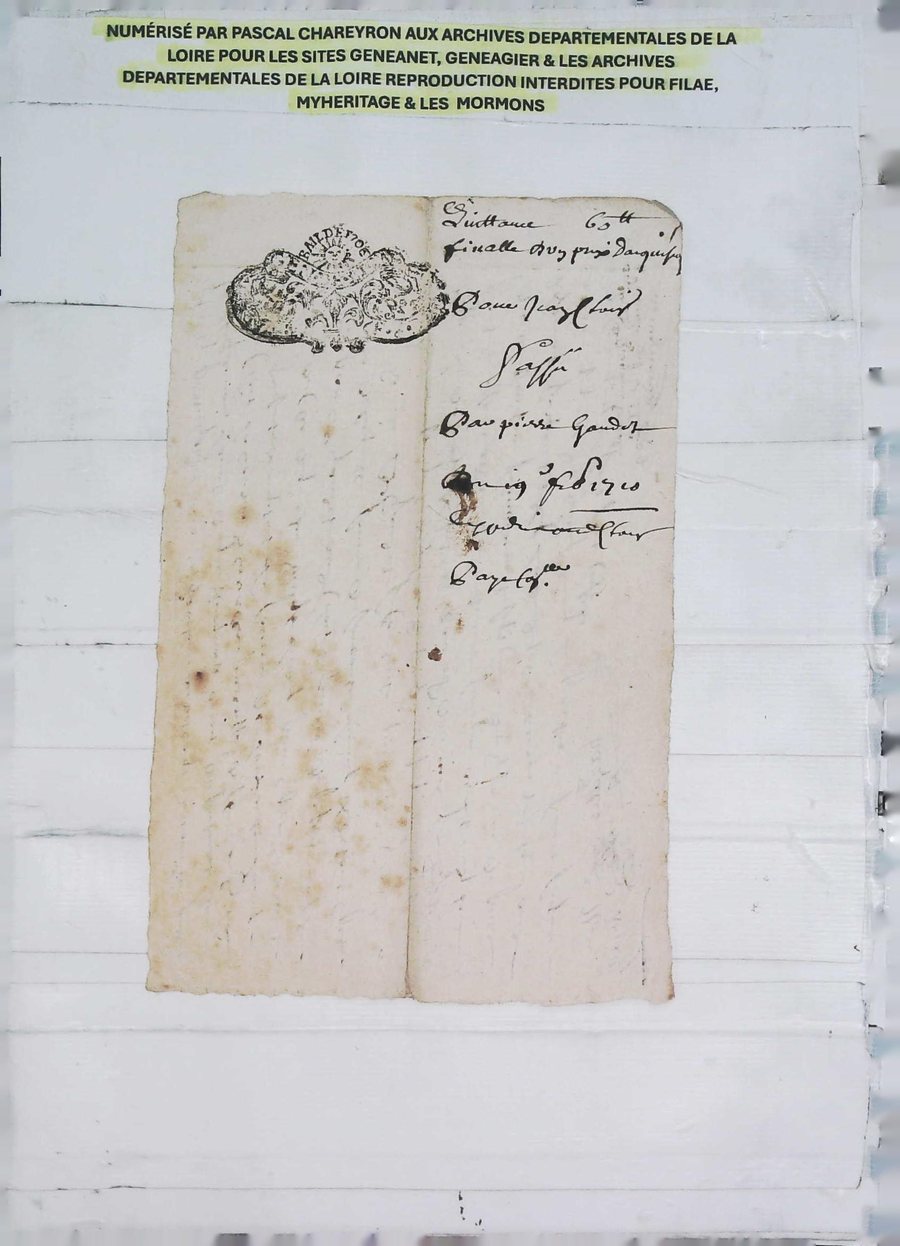 NUMÉRISÉ PAR PASCAL CHAREYRON AUX ARCHIVES DEPARTEMENTALES DE LA
LOIRE POUR LES SITES GENEANET, GENEAGIER & LES ARCHIVES
DEPARTEMENTALES DE LA LOIRE REPRODUCTION INTERDITES POUR FILAE,
MYHERITAGE & LES MORMONS
BAIL DE 1706
Quittance 65tt
finalle d'un prix d'acquis
Pour
Passé
Par pierre Gaudet
Du 19e feb 1710